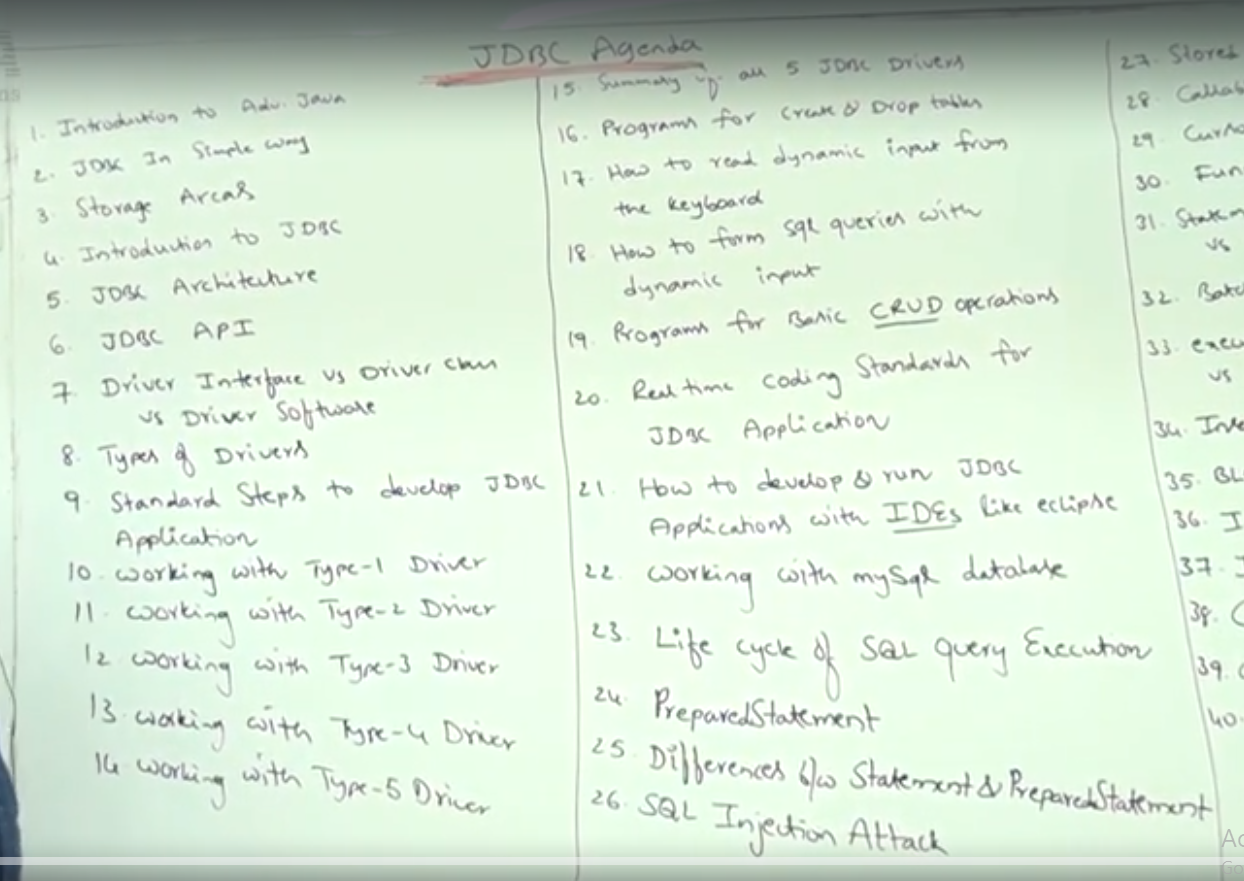 JDBC Agenda
1. Introduction to Adv. Java
2. JDBC In Simple way
3. Storage Areas
4. Introduction to JDBC
5. JDBC Architecture
6. JDBC API
7. Driver Interface vs Driver class
vs Driver Software
8. Types of Drivers
9. Standard Steps to develop JDBC
Application
10. working with Type-1 Driver
11. working with Type-2 Driver
12 working with Type-3 Driver
13. working with Type-4 Driver
14 working with Type-5 Driver
15. Summary of all 5 JDBC Drivers
16. Programs for create & Drop tables
17. How to read dynamic input from
the keyboard
18. How to form sql queries with
dynamic input
19. Programs for Basic CRUD operations
20. Real time coding Standards for
JDBC Application
21. How to develop & run JDBC
Applications with IDEs like eclipse
22. working with mySql database
23. Life cycle of SQL query Execution
24. PreparedStatement
25. Differences b/w Statement & PreparedStatement
26. SQL Injection Attack
27. Stored
28.
29.
30.
31.
vs
32.
33.
vs
34.
35. BL
36. I
37.
38.
39.
40.